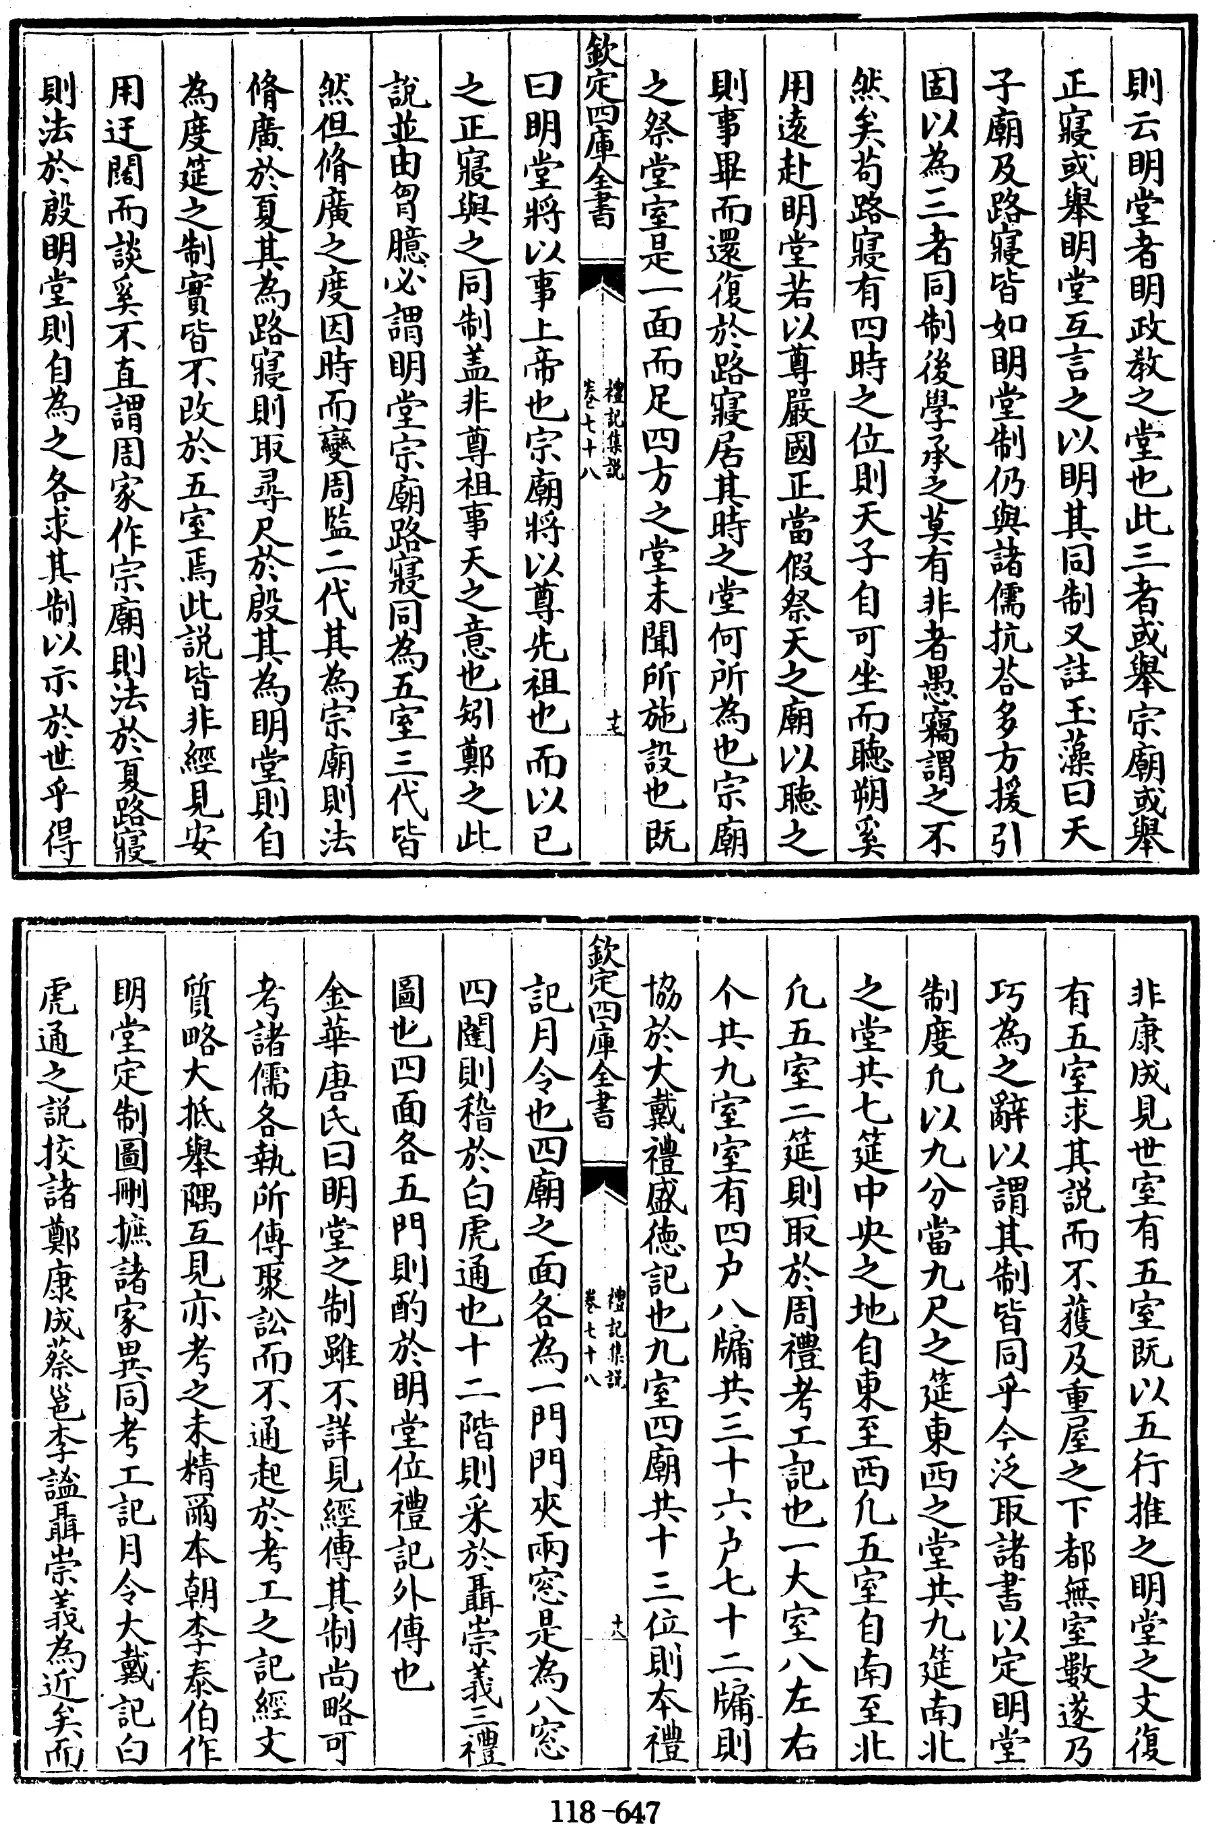 則云明堂者明政教之堂也此三者或舉宗廟或舉
正寢或舉明堂互言之以明其同制又註玉藻曰天
子廟及路寢皆如明堂制仍與諸儒抗荅多方援引
固以為三者同制後學承之莫有非者愚竊謂之不
然矣苟路寢有四時之位則天子自可坐而聽朔奚
用遠赴明堂若以尊嚴國正當假祭天之廟以聽之
則事畢而還復於路寢居其時之堂何所為也宗廟
之祭堂室是一面而足四方之堂未聞所施設也既
欽定四庫全書
禮記集說
卷七十八
十七
曰明堂將以事上帝也宗廟將以尊先祖也而以已
之正寢與之同制盖非尊祖事天之意也矧鄭之此
說並由胷臆必謂明堂宗廟路寢同為五室三代皆
然但脩廣之度因時而變周監二代其為宗廟則法
脩廣於夏其為路寢則取尋尺於殷其為明堂則自
為度筵之制實皆不改於五室焉此說皆非經見安
用迂闊而談奚不直謂周家作宗廟則法於夏路寢
則法於殷明堂則自為之各求其制以示於世乎得
非康成見世室有五室既以五行推之明堂之文復
有五室求其說而不獲及重屋之下都無室數遂乃
巧為之辭以謂其制皆同乎今泛取諸書以定明堂
制度凢以九分當九尺之筵東西之堂共九筵南北
之堂共七筵中央之地自東至西凢五室自南至北
凢五室二筵則取於周禮考工記也一大室八左右
个共九室室有四户八牖共三十六户七十二牖則
協於大戴禮盛徳記也九室四廟共十三位則本禮
欽定四庫全書
禮記集說
卷七十八
十八
記月令也四廟之面各為一門門夾兩窓是為八窓
四闥則稽於白虎通也十二階則采於聶崇義三禮
圖也四面各五門則酌於明堂位禮記外傳也
金華唐氏曰明堂之制雖不詳見經傳其制尚略可
考諸儒各執所傳聚訟而不通起於考工之記經文
質略大抵舉隅互見亦考之未精爾本朝李泰伯作
明堂定制圖刪摭諸家異同考工記月令大戴記白
虎通之說挍諸鄭康成蔡邕李謐聶崇義為近矣而
118-647